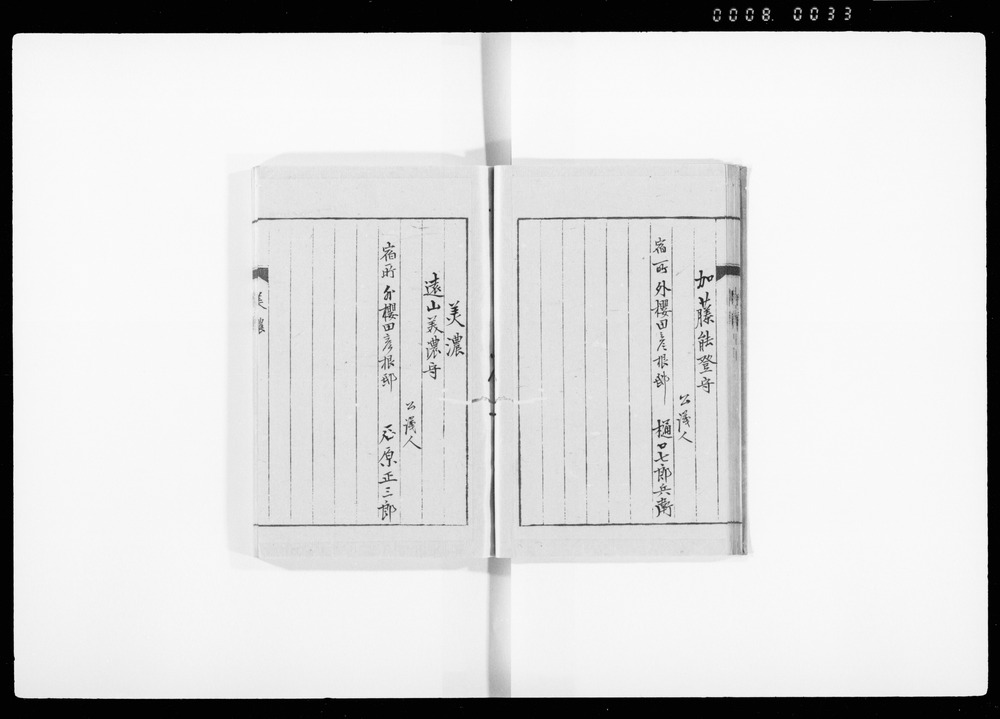 0008. 0033
加藤能登守
公議人
宿所外櫻田彦根邸 樋口七郎兵衛
美濃
遠山美濃守
公議人
宿所外櫻田彦根邸 原正三郎
美濃